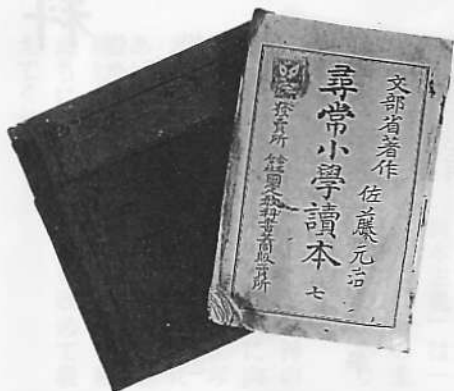 文部省著作 佐藤元治
尋常小學讀本 七
發賣所 國定教科書 販賣所